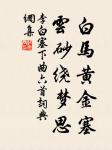 白马黄金塞
雲砂绕梦思
李白塞下曲六首詞典
網集